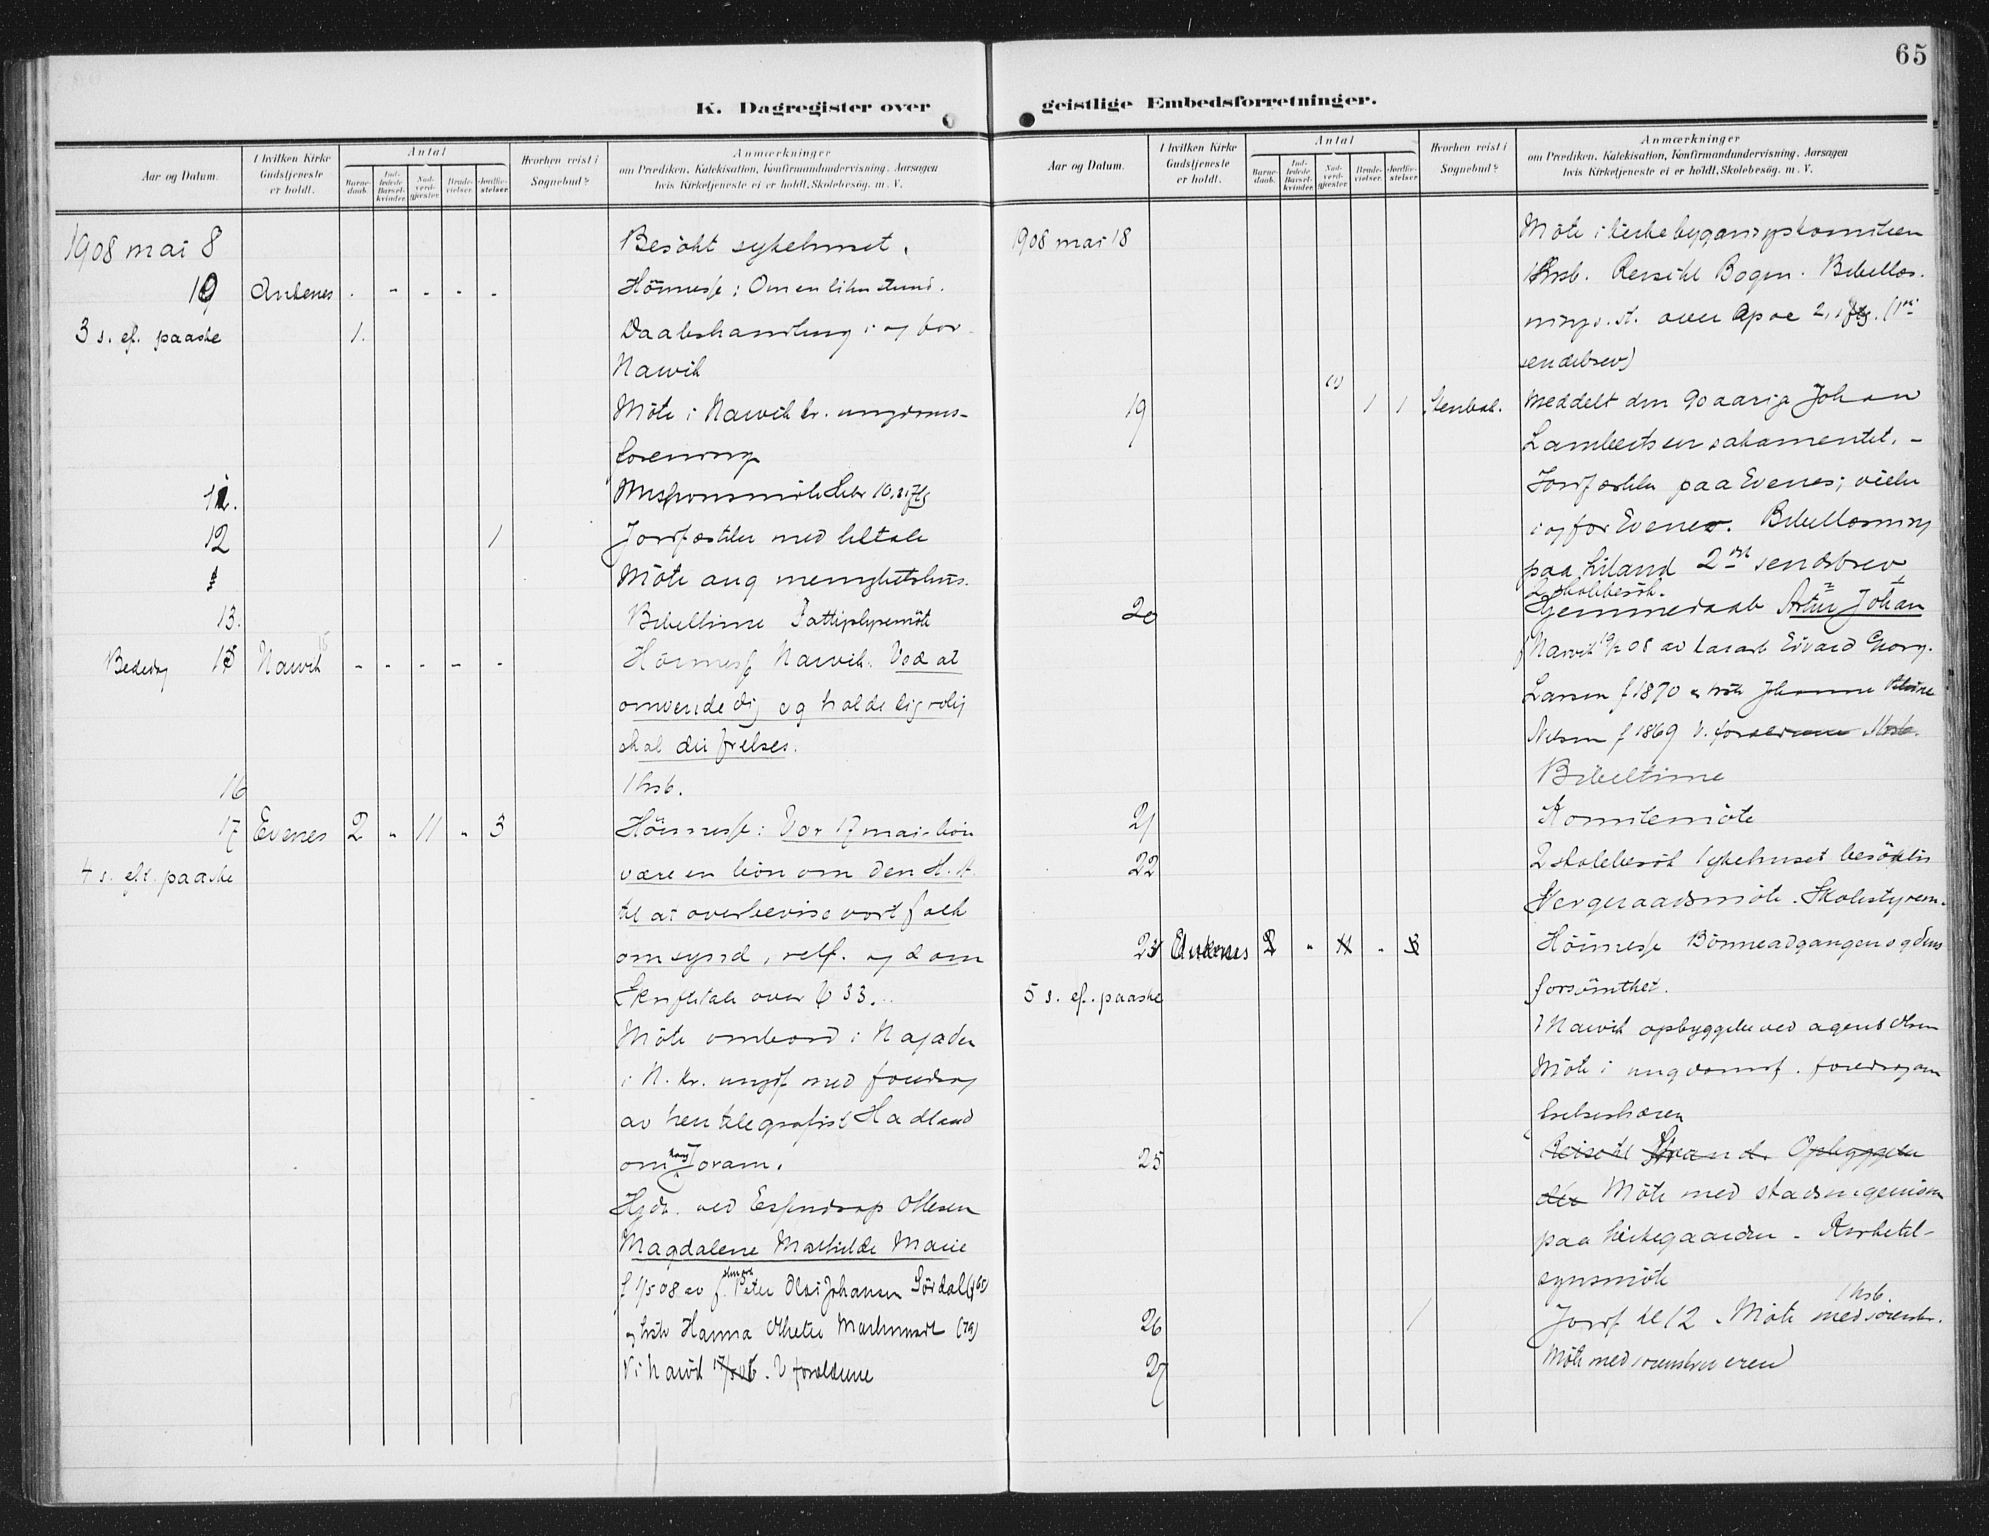 65
K. Dagregister over geistlige Embedsforretninger.
Aar og Datum.
I hvilken Kirke Gudstjeneste er holdt.
Antal
Barne-daab.
Ind-ledede Barsel-kvinder.
Nad-verd-gjester
Brude-vielser.
Jordfæ-stelser
Hvorhen reist i Sognebud?
Anmærkninger
om Prædiken, Katekisation, Konfirmandundervisning, Aarsagen
hvis Kirketjeneste ei er holdt, Skolebesøg. m. V.
1908 mai 8 Besökt sykehuset.
10 Ankenes . - - - - Höimesse: Om en liten stund.
3 s. ef. paaske 1. Daabshandling i og for
Narvik
Möte i Narvik kr. ungdoms-
forening
11. Missionsmöte Hebr 10.
12 1 Jordfæstelse med liktale
Möte ang menighetshus.
13. Bibeltime Fattigstyremöte
Bededag 15 Narvik - - - - - Höimesse Narvik. Ved at
omvende dig og holde dig rolig
skal du frelses.
16 1 hsb.
17 Evenes 2 " 11 " 3 Höimesse: Vor 17 mai-bön
4 s. eft. paaske være en bön om den H. A.
til at overbevise vort folk
om synd, retf. og dom
Skriftetale over 6 33.
Möte ombord i Najaden
i N. kr. ungdf. med foredrag
av herr telegrafist Hadland
om kong Joram.
Hjdb. ved Olesen
Magdalene Mathilde Marie
f 1/5 08 av Peter Olai Johansen Sördal
og hstr Hanna
i Narvik. V forældrene
Aar og Datum.
I hvilken Kirke Gudstjeneste er holdt.
Antal
Barne-daab.
Ind-ledede Barsel-kvinder.
Nad-verd-gjester
Brude-vielser.
Jordfæ-stelser
Hvorhen reist i Sognebud?
Anmærkninger
om Prædiken, Katekisation, Konfirmandundervisning, Aarsagen
hvis Kirketjeneste ei er holdt, Skolebesög. m. V.
1908 mai 18 Möte i kirkebygningskomiteen
1 hsb. Reise til Bogen. Bibellæs-
nings. st. over Apoc 2, 1 flg. (1ste
sendebrev)
19 (1) 1 1 Stenbak. Meddelt den 90 aarige Johan
Lambertsen sakramentet. -
Jordfæstelse paa Evenes; vielse
i og for Evenes. Bibellæsning
paa Liland 2det sendebrev
2 skolebesök.
20 Hjemmedaab Artur Johan
f Narvik 08 av Edvard Georg
Larsen f 1870 og hstr Johanne
Nilsen f 1869 V. forældrene
Bibeltime
21 Komitemöte
22 2 skolebesök Sykehuset besökt
Vergeraadsmöte. Skolestyrem.
24 Ankenes 2 " 11 " 3 Höimesse Bönneadgangen og dens
5 s. ef. paaske forsömthet.
I Narvik opbyggelse ved agent Olsen
Möte i ungdomsf. foredrag om
frelseshæren
25 Reise til Strand. Opbyggelse
der Möte med stadsingeniören
paa kirkegaarden - Kirketil-
synsmöte
1 hsb.
26 1 Jordf kl 12. Möte med
27 Möte med